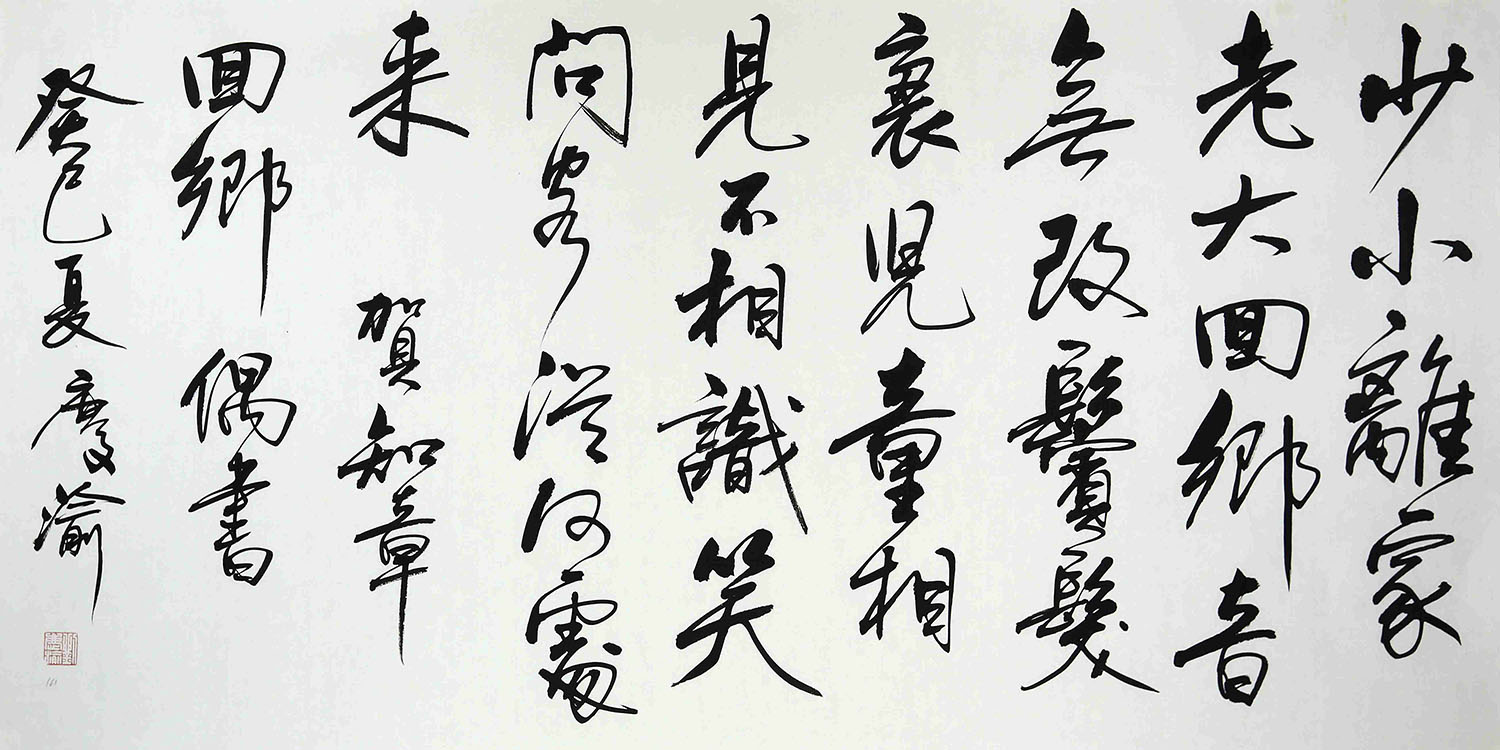 少小離家
老大回鄉音
無改鬢髮
衰兒童相
見不相識笑
問客從何處
来 賀知章
回鄉偶書
癸巳夏慶渝